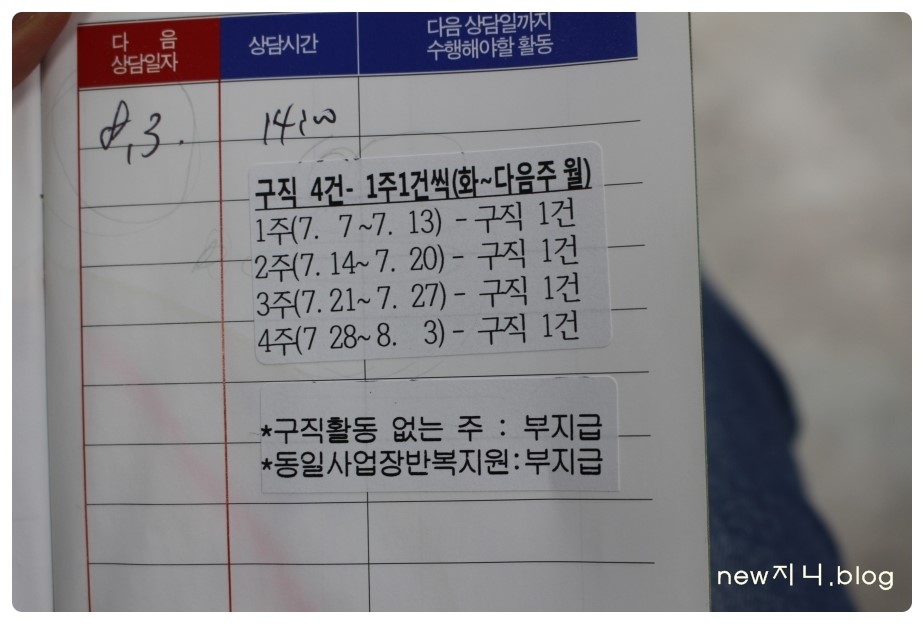 다 음
상담일자
상담시간
다음 상담일까지
수행해야할 활동
8, 3.
14:00
구직 4건- 1주1건씩(화~다음주 월)
1주(7. 7~7. 13) - 구직 1건
2주(7. 14~ 7. 20) - 구직 1건
3주(7. 21~ 7. 27) - 구직 1건
4주(7 28~ 8. 3) - 구직 1건
*구직활동 없는 주 : 부지급
*동일사업장반복지원:부지급
new지니.blog